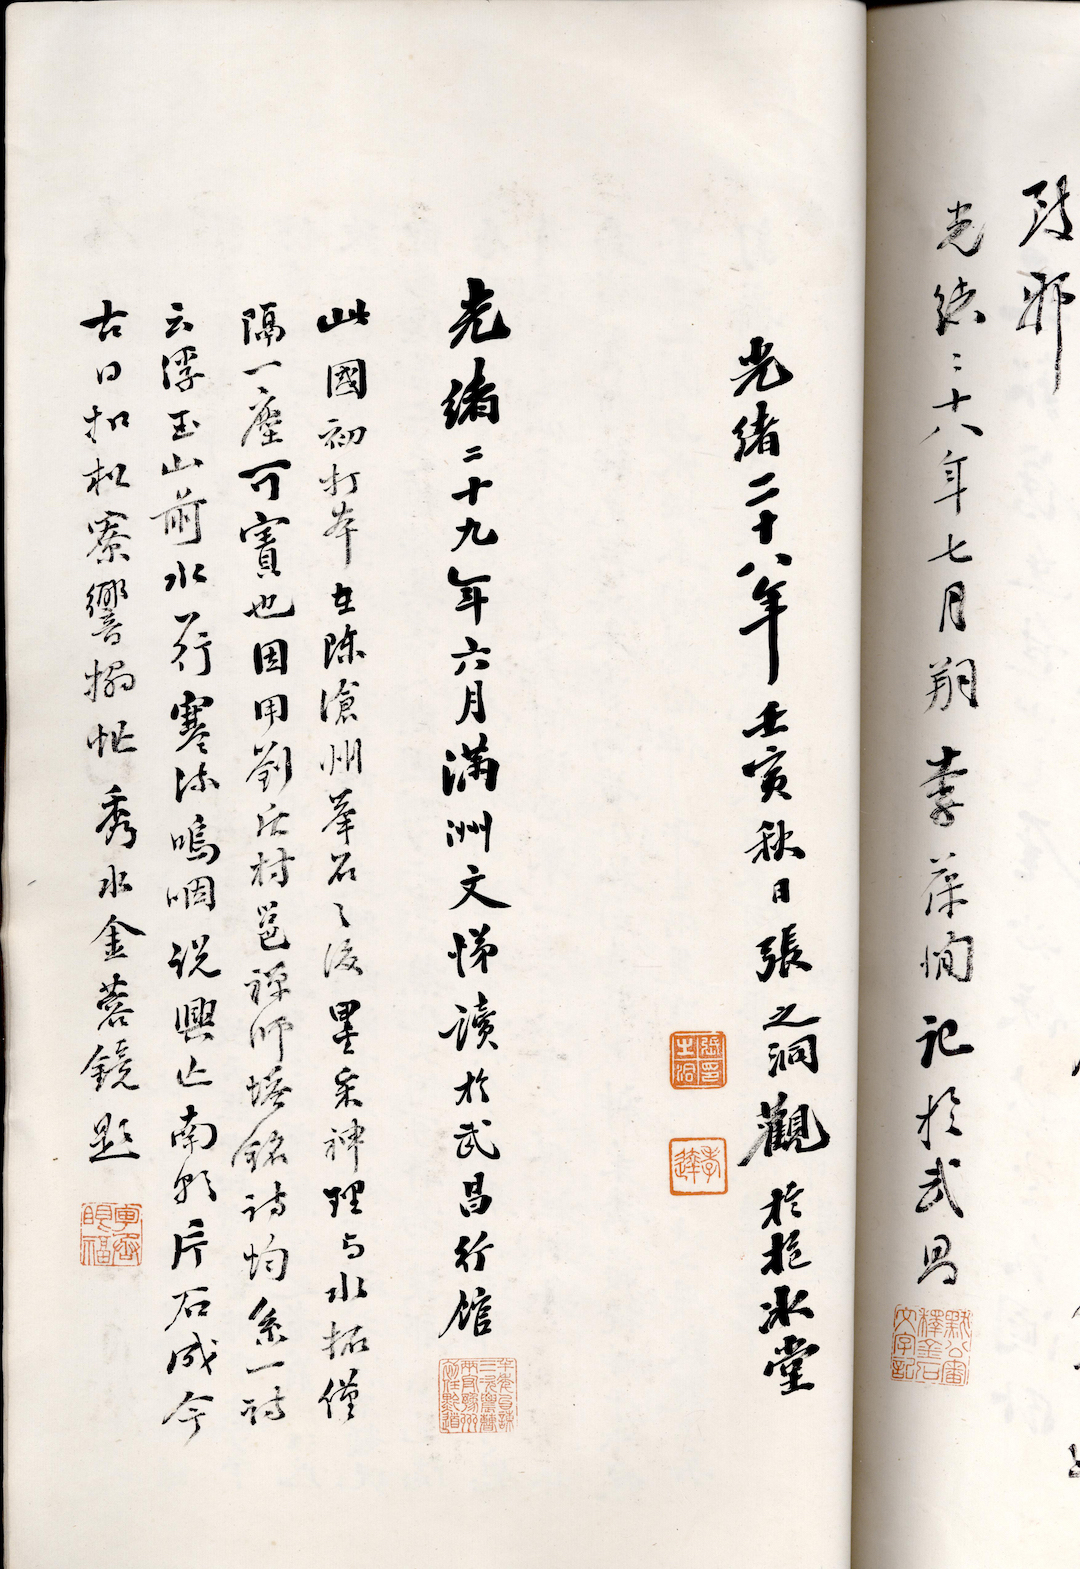 光緒二十八年七月朔李葆恂記於武昌
光緒二十八年壬寅秋日張之洞觀於抱冰堂
光緒二十九年六月滿洲文悌讀於武昌行館
此國初打本在陳滄州舉石之後墨采神理与水拓僅
隔一塵可寶也因用劉後村邕禪師塔銘詩韵系一詩
云浮玉山前水一行寒流嗚咽說興亡南朝片石成今
古日扣松寮響搨忙 秀水金蓉鏡題